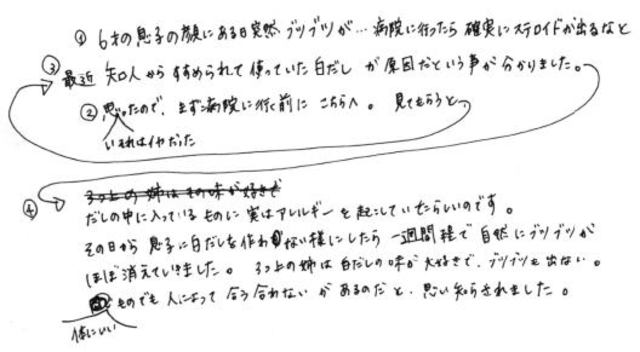 ① 6才の息子の顔にある日突然ブツブツが…病院に行ったら確実にステロイドが出るなと
③ 最近 知人からすすめられて使っていた白だしが原因だという事が分かりました。
② 思ったので、まずは病院に行く前にこちらへ。見てもらうと、
いそれはイヤだった
3つ上の姉はその味が好きで
④ だしの中に入っているものに実はアレルギーを起こしていたらしいのです。
その日から息子に白だしを作わない様にしたら一週間程で自然にブツブツが
ほぼ消えていきました。3つ上の姉は白だしの味が大好きで、ブツブツも出ない。
ものでも人によって合う合わないがあるのだと、思い知らされました。
体にいい